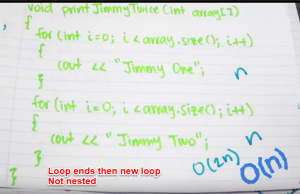 void printJimmyTwice (int array[])
{
for (int i=0; i < array.size(); i++)
{
cout << "Jimmy One";
n
}
for (int i=0; i < array.size(); i++)
{
cout << "Jimmy Two";
n
}
O(2n) O(n)
}
Loop ends then new loop
Not nested